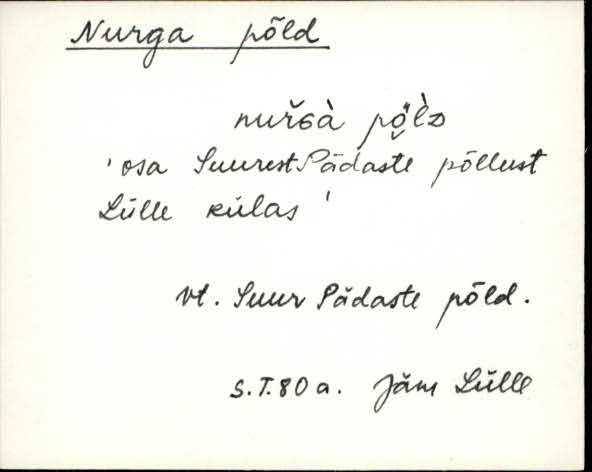 Nurga põld
nuřɢà pö̬̀lᴅ
'osa Suurest Pädaste põllust
Lülle külas'
vt. Suur Pädaste põld.
S.T. 80 a. Jäm Lülle